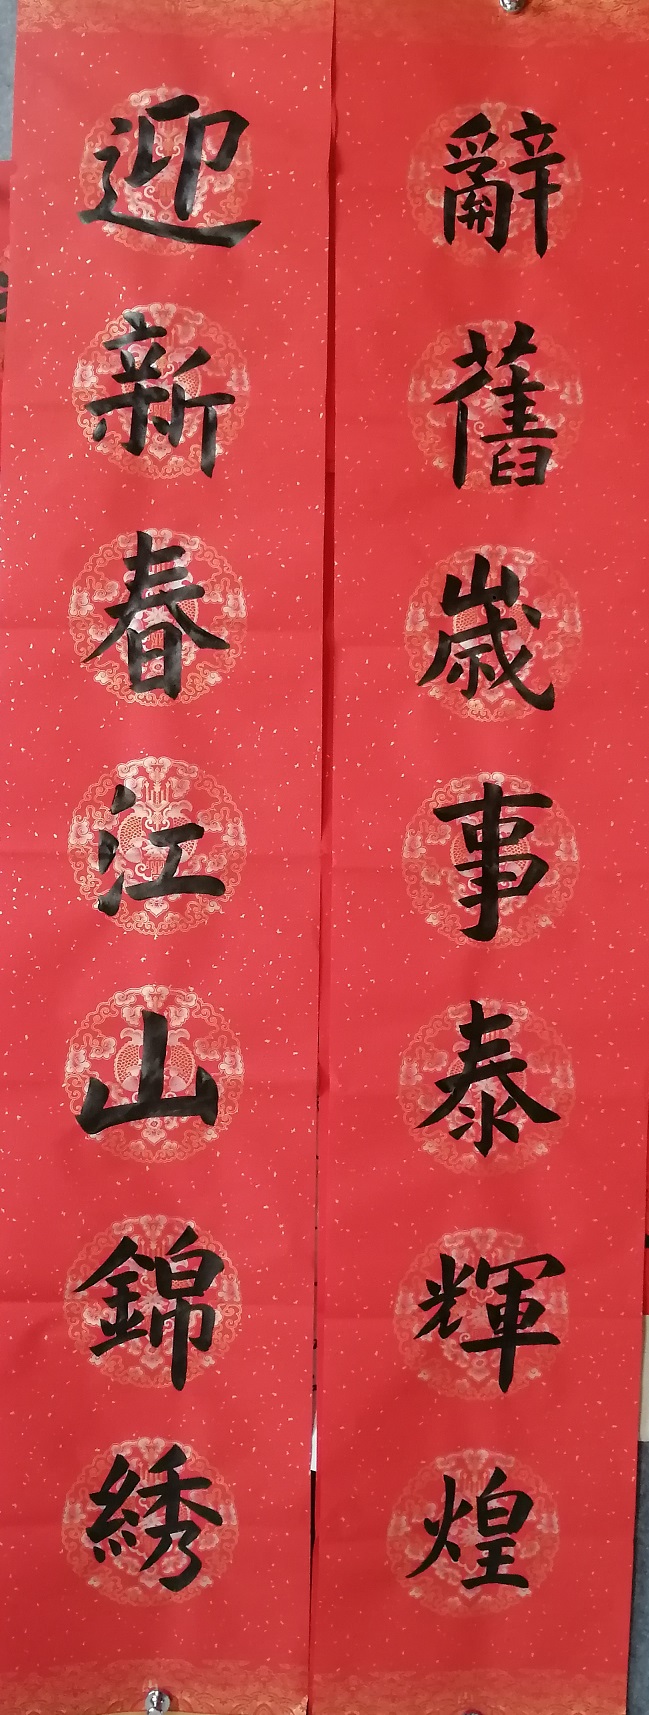 辭舊歲事泰輝煌
迎新春江山錦綉